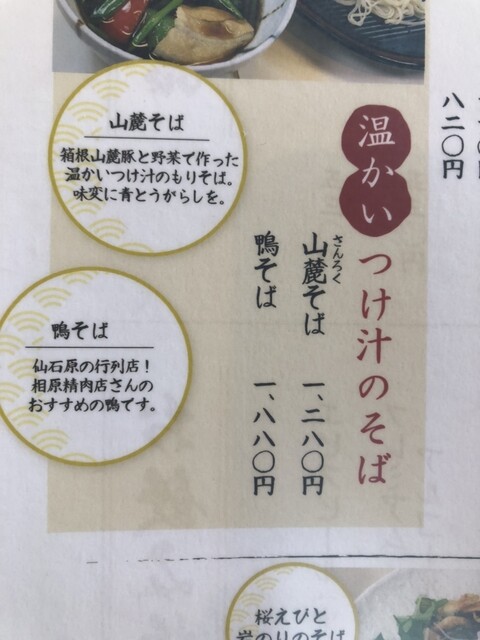 八二〇円
温かいつけ汁のそば
さんろく
山麓そば 一、二八〇円
鴨そば 一、八八〇円
山麓そば
箱根山麓豚と野菜で作った
温かいつけ汁のもりそば。
味変に青とうがらしを。
鴨そば
仙石原の行列店！
相原精肉店さんの
おすすめの鴨です。
桜えびと
岩のりのそば